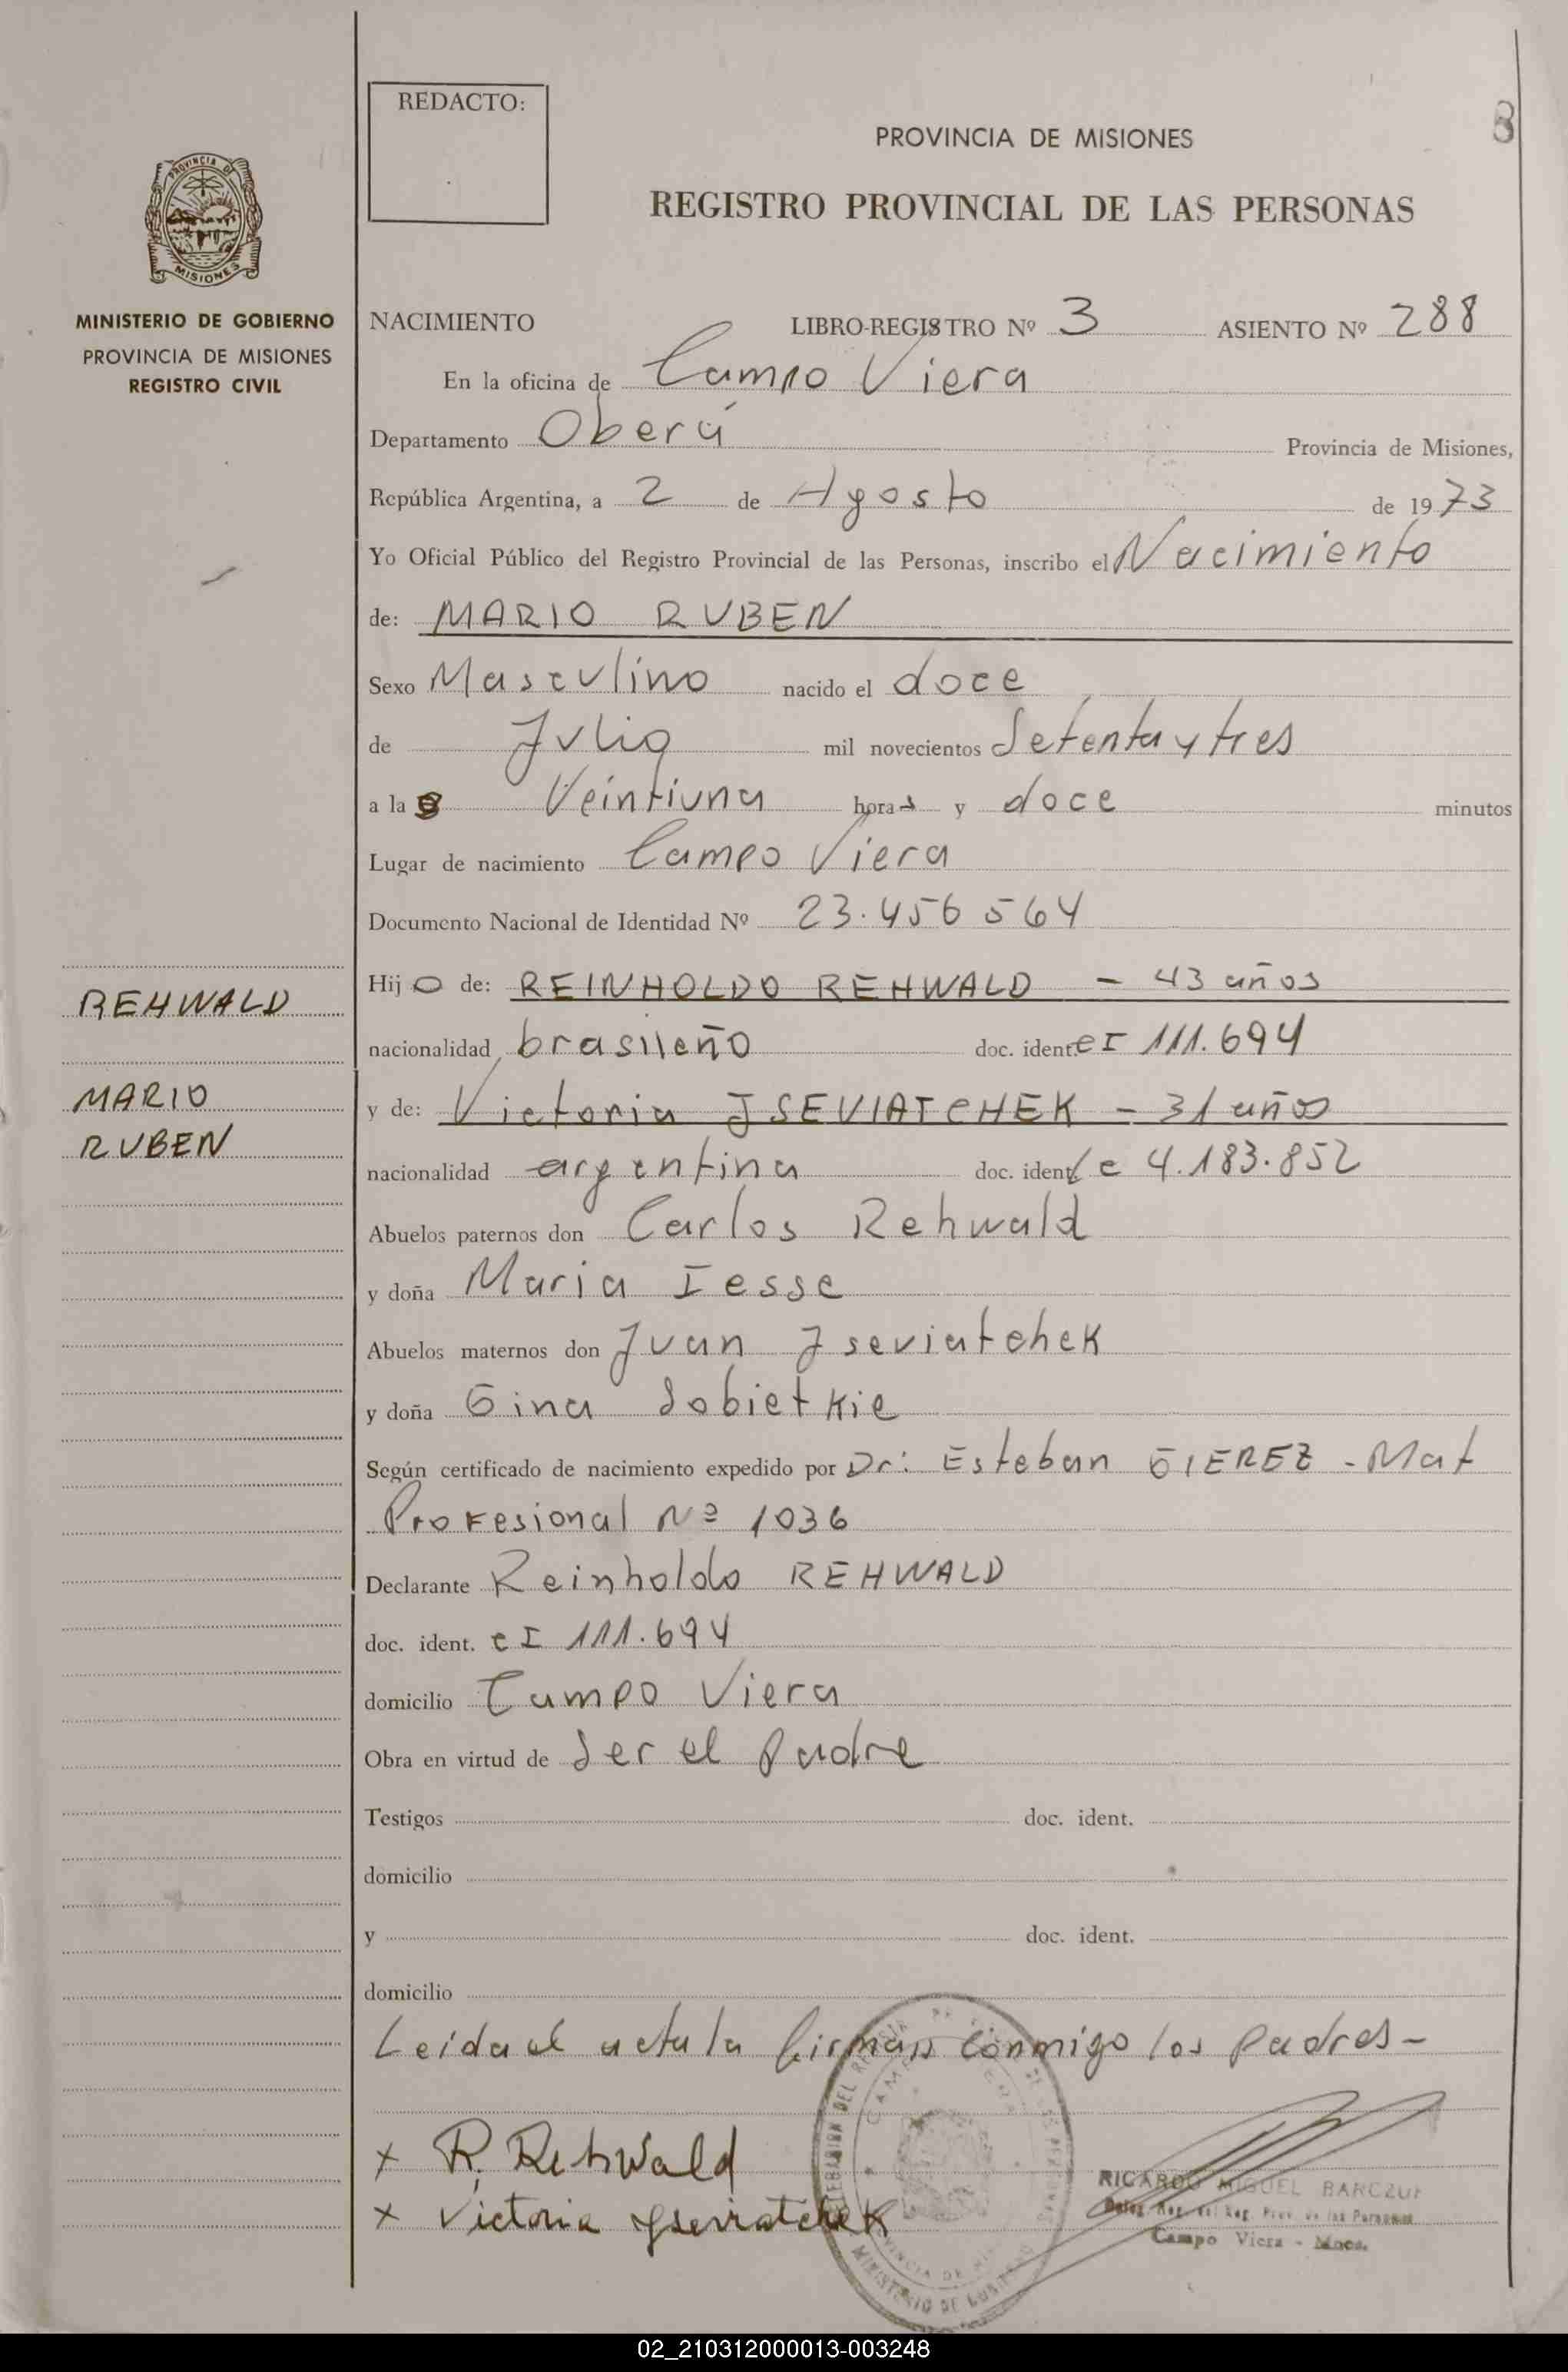 REDACTO:
8
PROVINCIA DE MISIONES
REGISTRO PROVINCIAL DE LAS PERSONAS
PROVINCIA DE
MISIONES
MINISTERIO DE GOBIERNO
PROVINCIA DE MISIONES
REGISTRO CIVIL
NACIMIENTO LIBRO-REGISTRO Nº 3 ASIENTO Nº 288
En la oficina de Campo Viera
Departamento Oberá Provincia de Misiones,
República Argentina, a 2 de Agosto de 1973
Yo Oficial Público del Registro Provincial de las Personas, inscribo el Nacimiento
de: MARIO RUBEN
Sexo Masculino nacido el doce
de Julio mil novecientos Setenta y tres
a las Veintiuna horas y doce minutos
Lugar de nacimiento Campo Viera
Documento Nacional de Identidad Nº 23.456 564
Hijo de: REINHOLDO REHWALD - 43 años
REHWALD
nacionalidad brasileño doc. ident. CI 111.694
MARIO
y de: Victoria JSEVIATCHEK - 31 años
RUBEN
nacionalidad argentina doc. ident LC 4.183.852
Abuelos paternos don Carlos Rehwald
y doña Maria Iesse
Abuelos maternos don Juan Jseviatchek
y doña Gina Sobietkie
Según certificado de nacimiento expedido por Dr: Esteban GIEREZ - Mat
Profesional Nº 1036
Declarante Reinholdo REHWALD
doc. ident. CI 111.694
domicilio Campo Viera
Obra en virtud de Ser el padre
Testigos doc. ident.
domicilio
y doc. ident.
domicilio
Leida el acta la firman conmigo los padres -
x R. Rehwald
x Victoria Jseviatchek
RICARDO MIGUEL BARCZUK
Campo Viera - Mnes.
MINISTERIO DE GOBIERNO
02_210312000013-003248